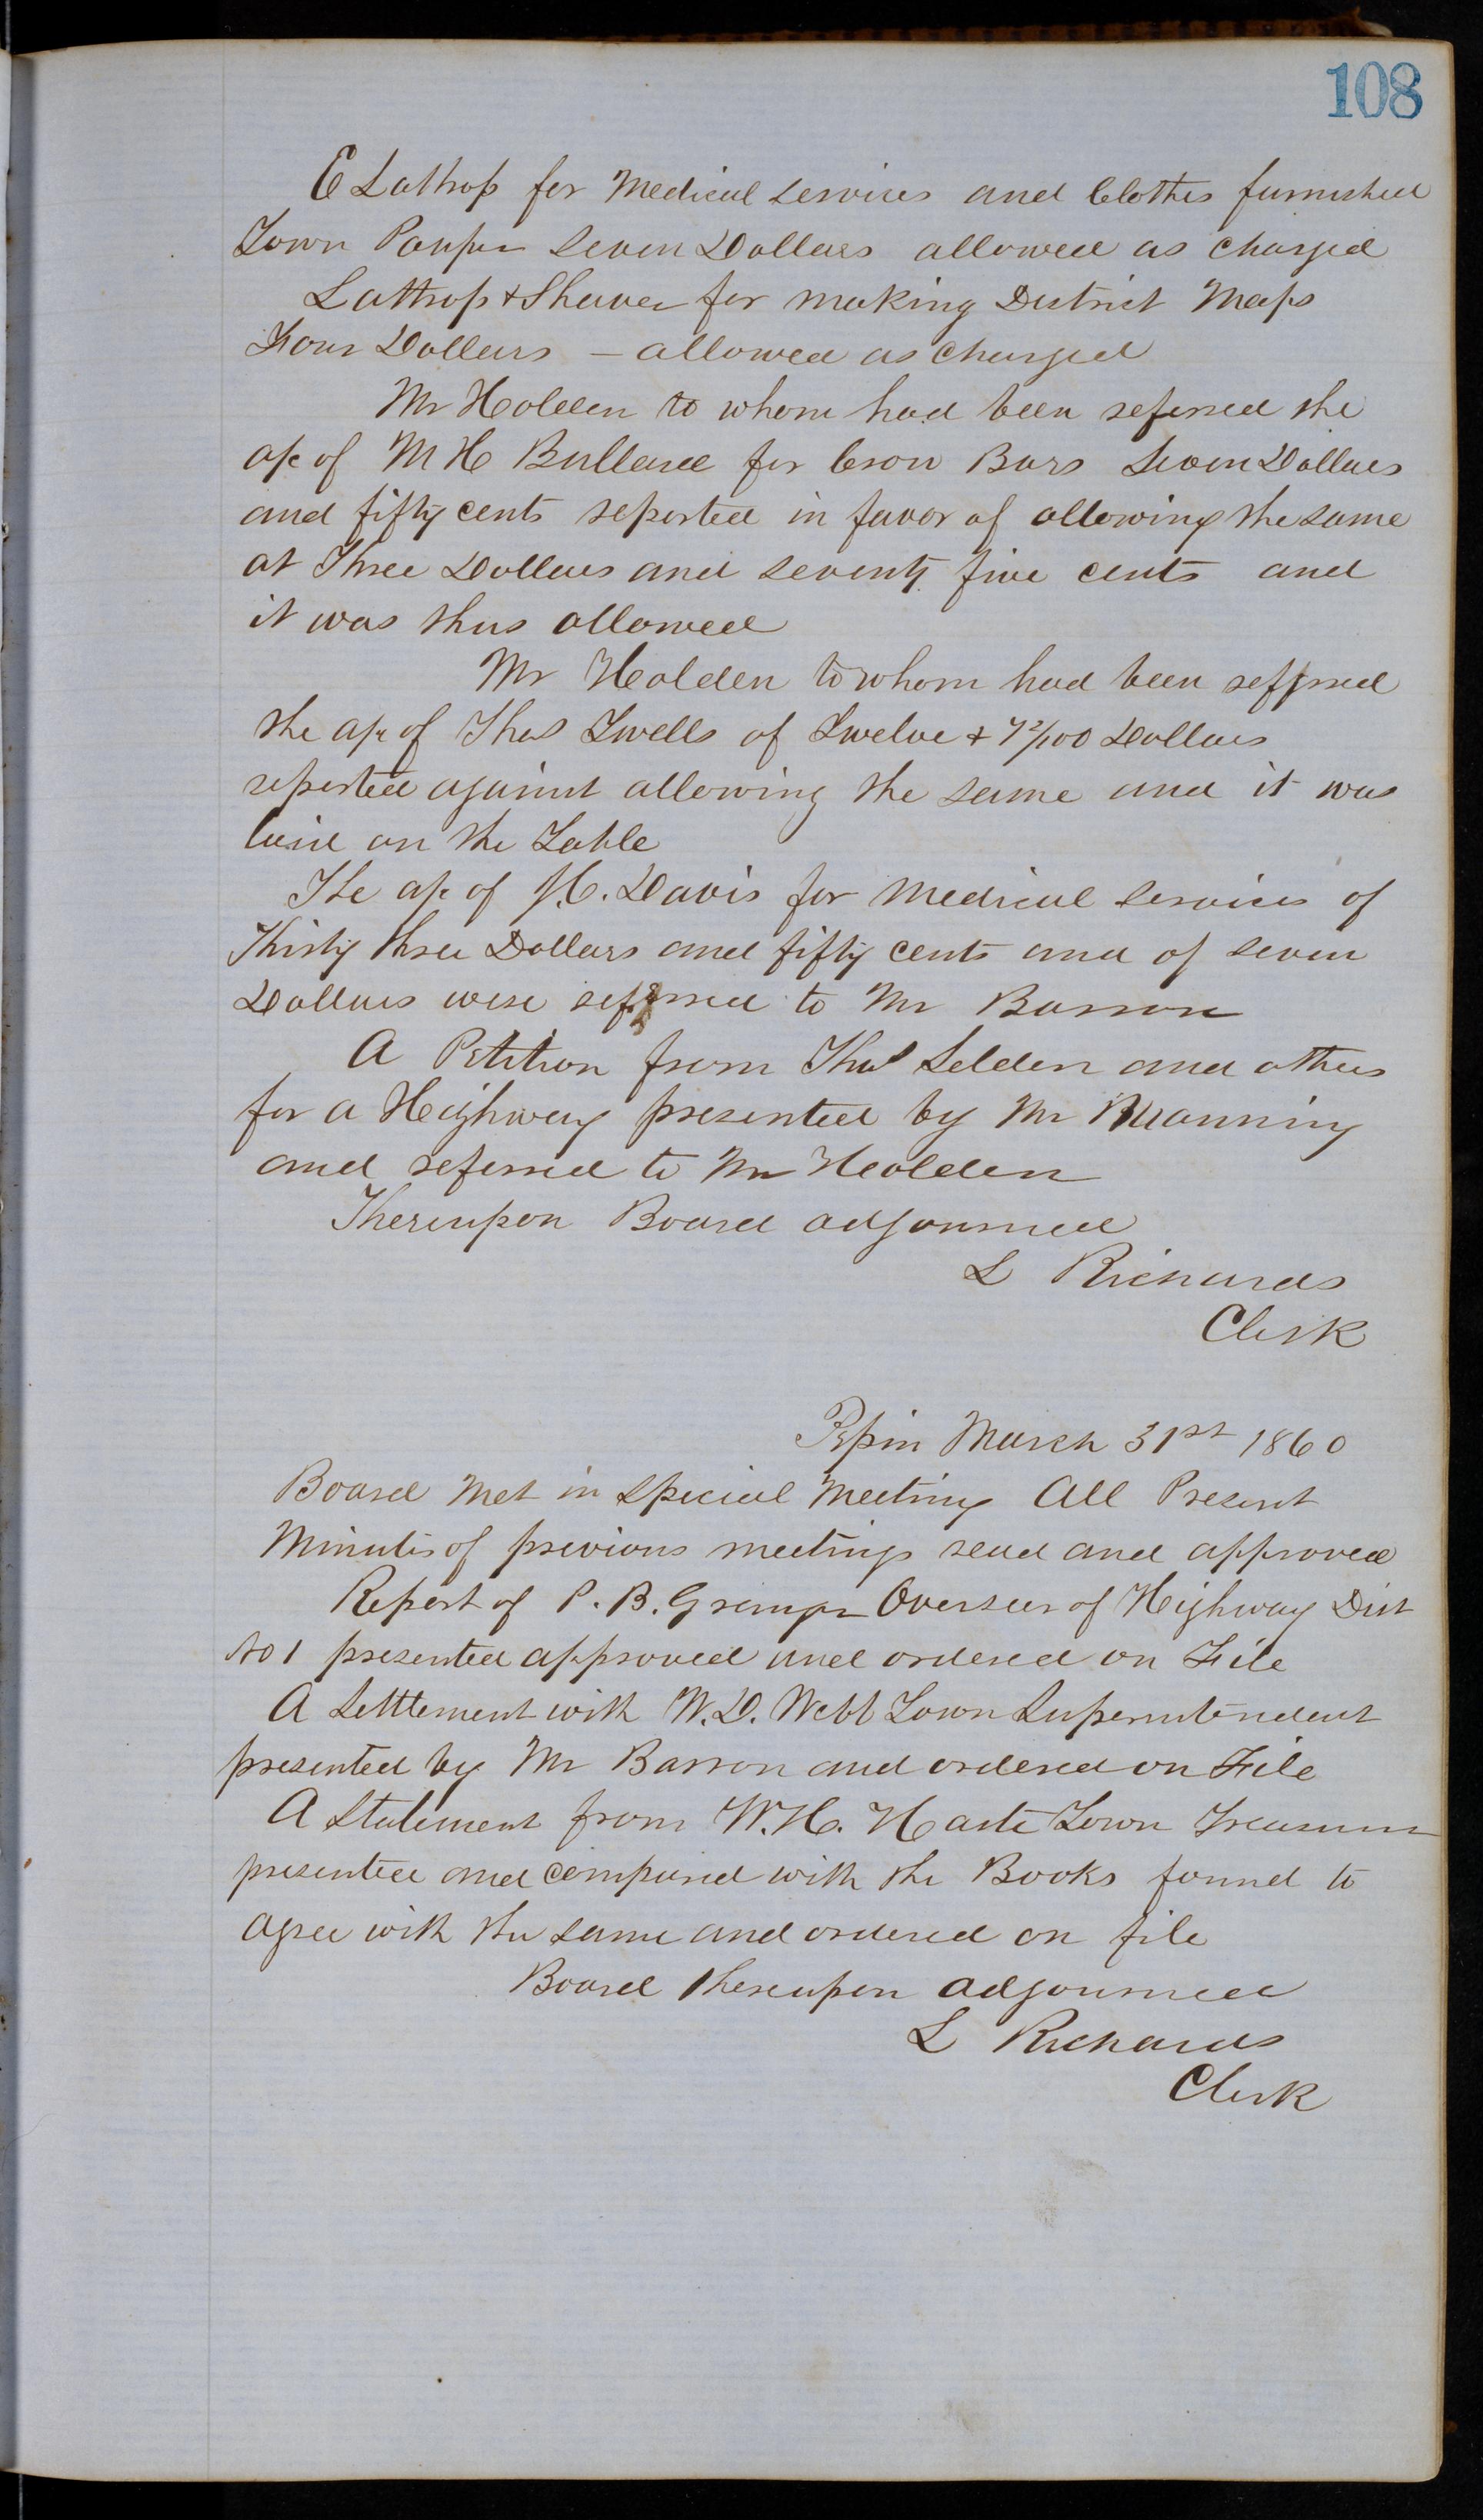 108
E Lathrop for Medical services and Clothes furnished
Town Pauper Seven Dollars allowed as charged
Lathrop & Shaver for making District Maps
Four Dollars – allowed as charged
Mr Holden to whom had been referred the
a/c of M H Bullard for Crow Bars Seven Dollars
and fifty cents reported in favor of allowing the same
at Three Dollars and seventy five cents and
it was thus allowed
Mr Holden to whom had been referred
the a/c of Thos Twells of Twelve & 72/100 Dollars
reported against allowing the same and it was
laid on the Table
The a/c of J.C. Davis for Medical services of
Thirty three Dollars and fifty cents and of seven
Dollars were referred to Mr Barron
A Petition from Thos Selden and others
for a Highway presented by Mr Manning
and referred to Mr Holden
Thereupon Board adjourned
L Richards
Clerk
Pepin March 31st 1860
Board Met in Special Meeting All Present
Minutes of previous meetings read and approved
Report of P. B. Overseer of Highway Dist
No 1 presented approved and ordered on File
A Settlement with W. D. Webb Town Superintendent
presented by Mr Barron and ordered on File
A Statement from W. H. Harte Town Treasurer
presented and compared with the Books found to
agree with the same and ordered on file
Board thereupon adjourned
L Richards
Clerk